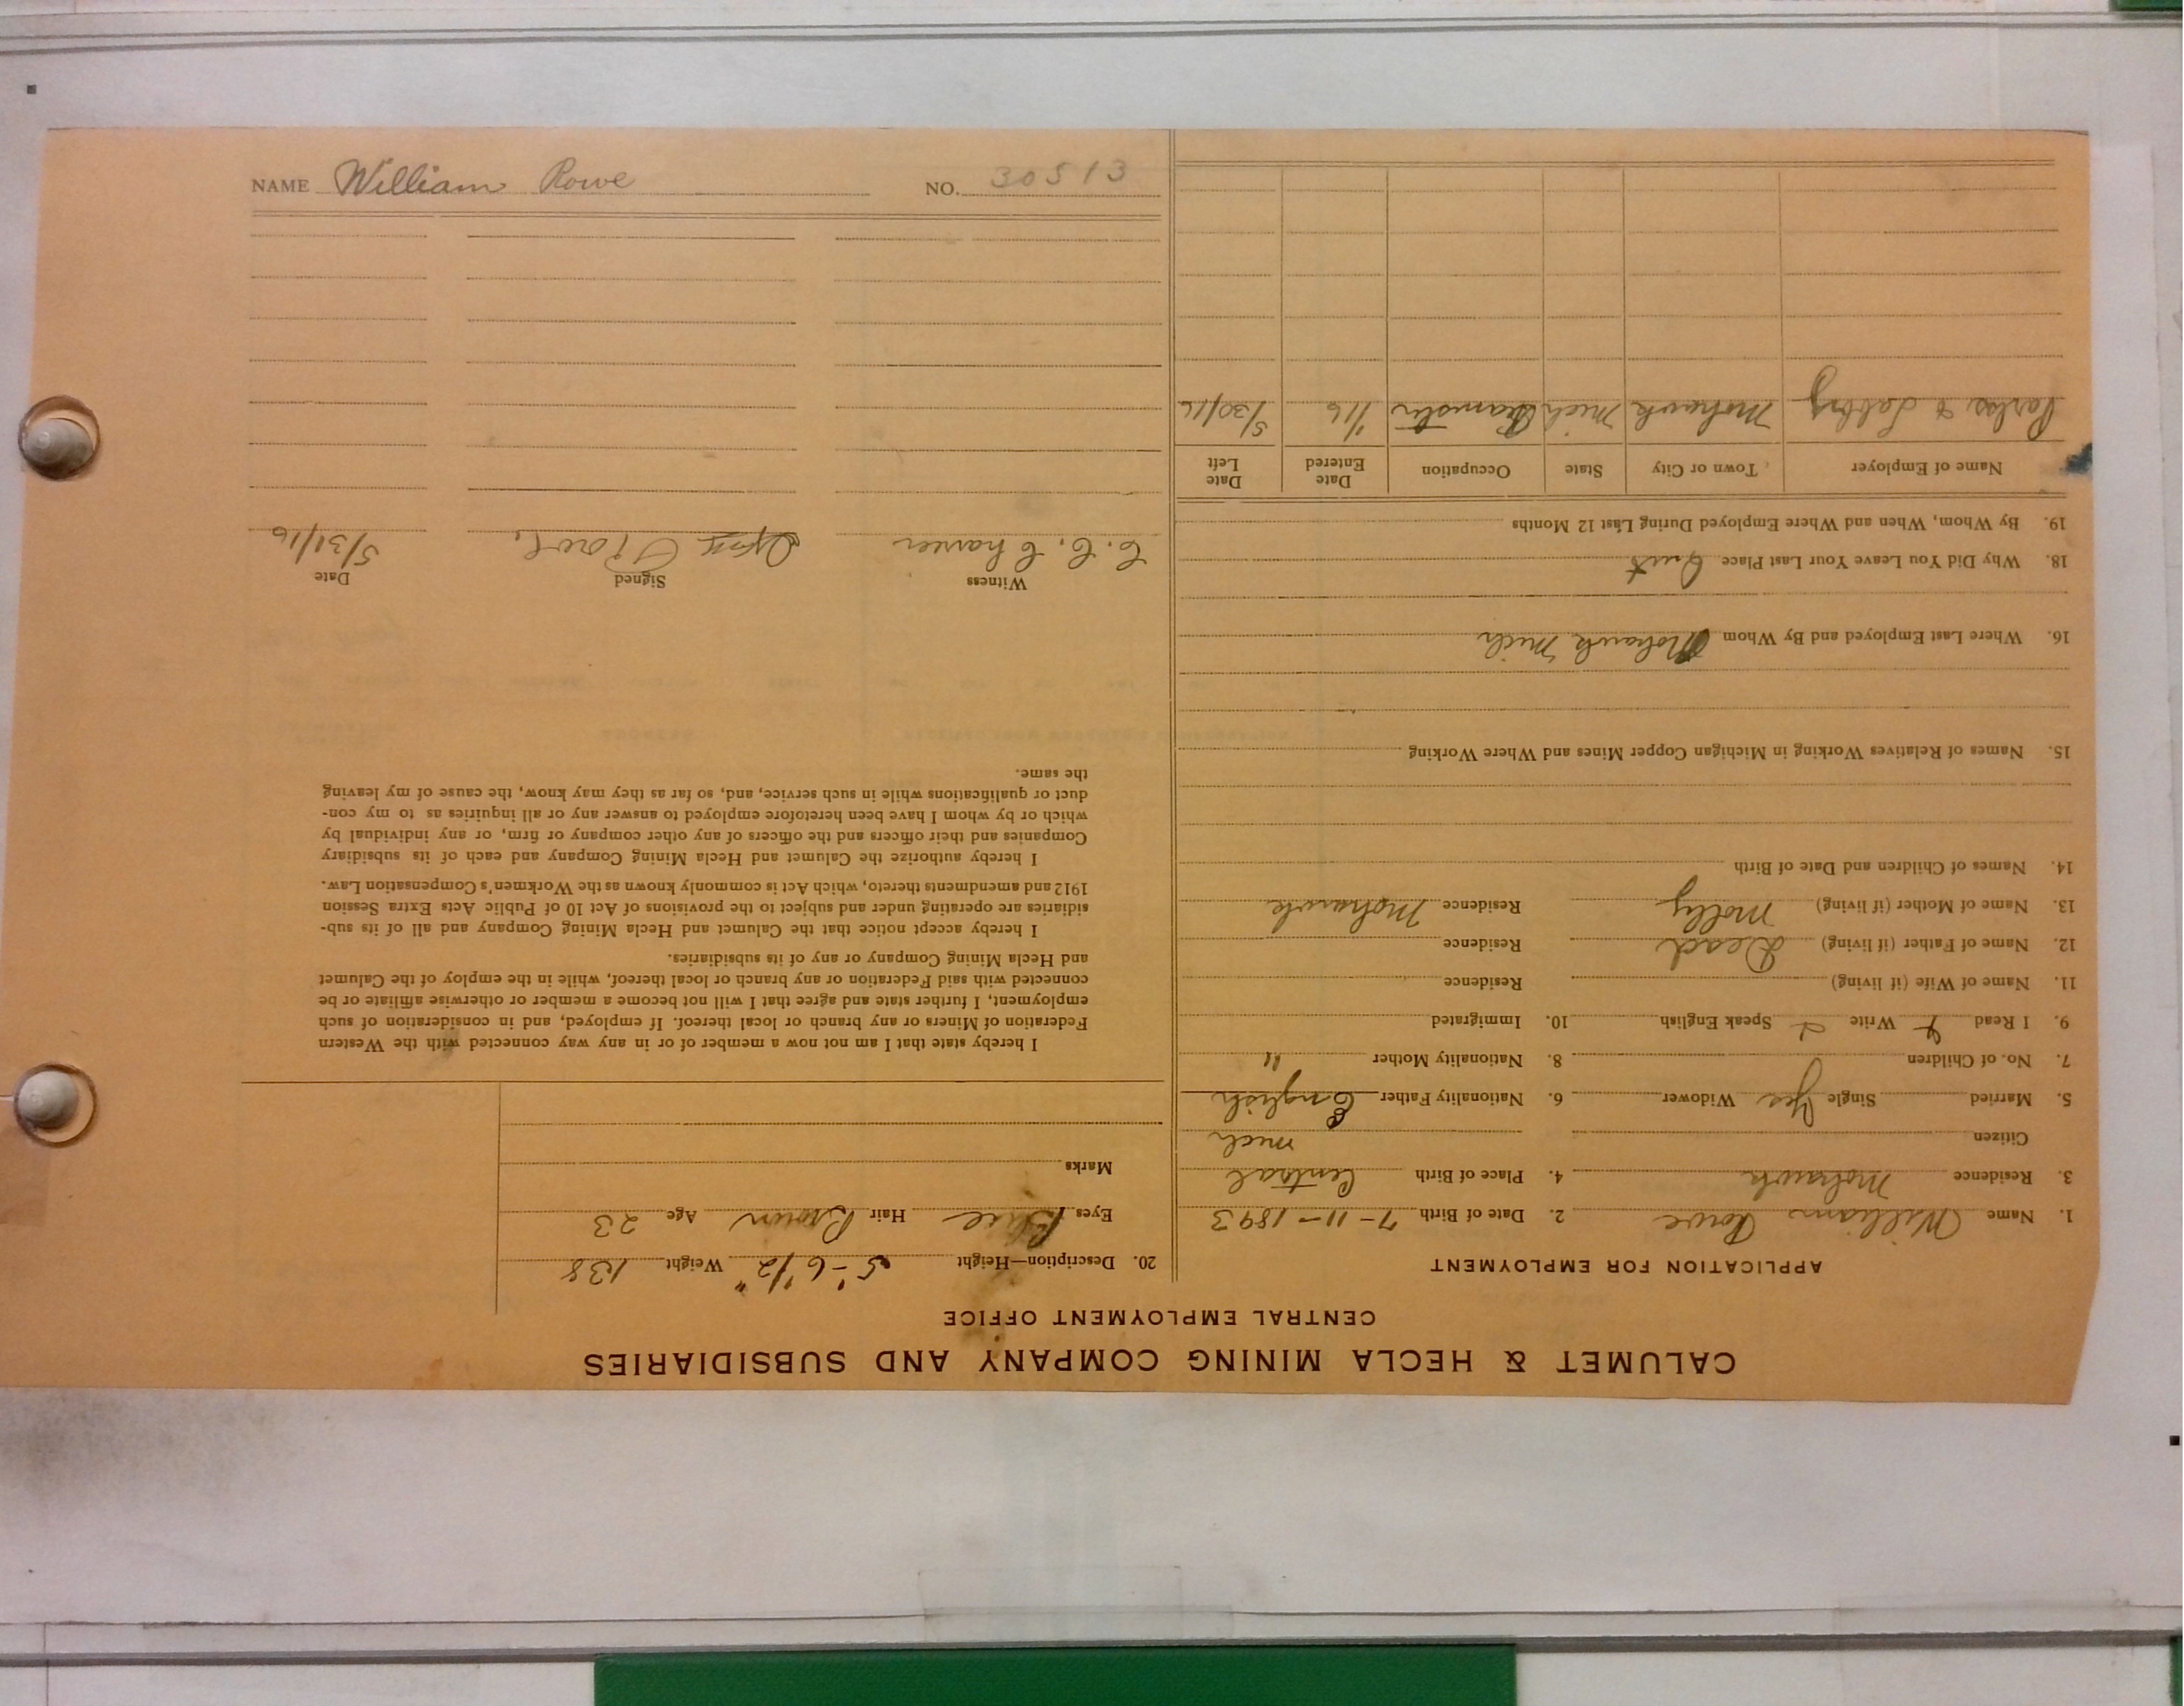 CALUMET & HECLA MINING COMPANY AND SUBSIDIARIES
CENTRAL EMPLOYMENT OFFICE
APPLICATION FOR EMPLOYMENT
1. Name William Rowe 2. Date of Birth 7-11-1893
3. Residence Mohawk 4. Place of Birth Central
Citizen Mich
5. Married Single Yes Widower 6. Nationality Father English
7. No. of Children 8. Nationality Mother "
9. I Read Write Speak English 10. Immigrated
11. Name of Wife (if living) Residence
12. Name of Father (if living) Dead Residence
13. Name of Mother (if living) Molly Residence Mohawk
14. Names of Children and Date of Birth
15. Names of Relatives Working in Michigan Copper Mines and Where Working
16. Where Last Employed and By Whom Mohawk Mich
18. Why Did You Leave Your Last Place Quit
19. By Whom, When and Where Employed During Last 12 Months
Name of Employer Town or City State Occupation Date Entered Date Left
& Mohawk Mich Teamster 1/16 5/30/16
20. Description—Height 5'-6 1/2" Weight 138
Eyes Blue Hair Brown Age 23
Marks
I hereby state that I am not now a member of or in any way connected with the Western
Federation of Miners or any branch or local thereof. If employed, and in consideration of such
employment, I further state and agree that I will not become a member or otherwise affiliate or be
connected with said Federation or any branch or local thereof, while in the employ of the Calumet
and Hecla Mining Company or any of its subsidiaries.
I hereby accept notice that the Calumet and Hecla Mining Company and all of its sub-
sidiaries are operating under and subject to the provisions of Act 10 of Public Acts Extra Session
1912 and amendments thereto, which Act is commonly known as the Workmen's Compensation Law.
I hereby authorize the Calumet and Hecla Mining Company and each of its subsidiary
Companies and their officers and the officers of any other company or firm, or any individual by
which or by whom I have been heretofore employed to answer any or all inquiries as to my con-
duct or qualifications while in such service, and, so far as they may know, the cause of my leaving
the same.
Witness Signed Date
C. C. Rowe. 5/31/16
NAME William Rowe NO. 30513